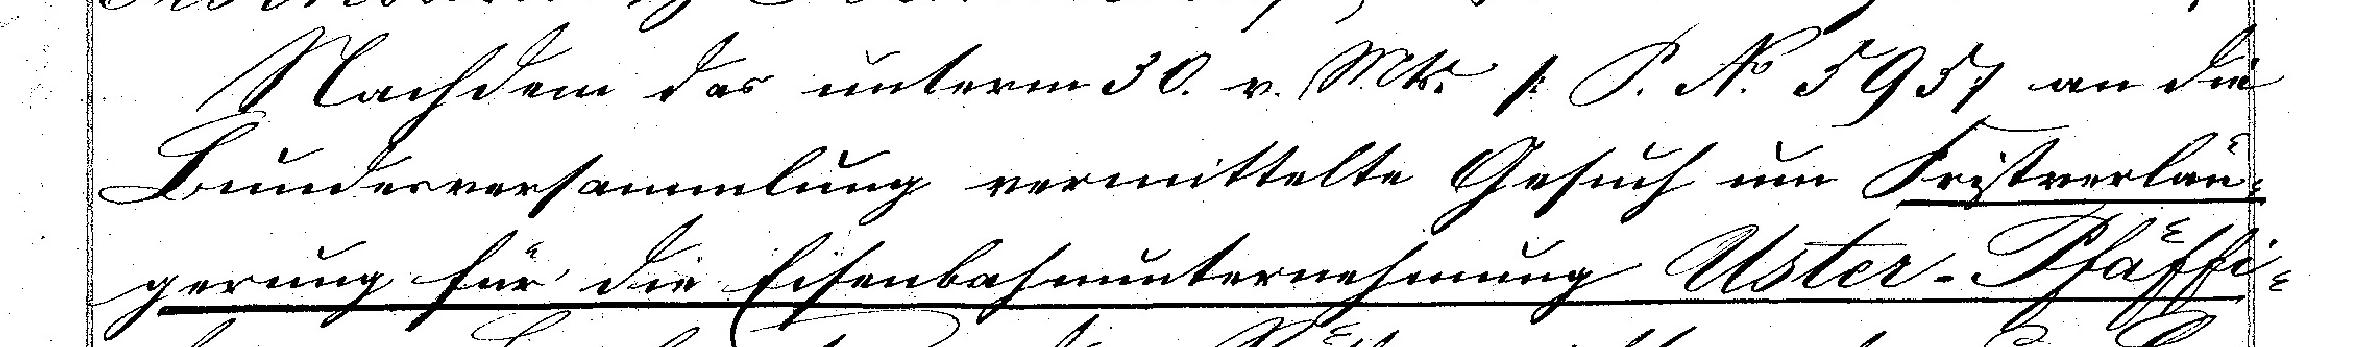 Nachdem das unterm 30. v. Mts. s: P. No 5957 an die
Bundesversammlung vermittelte Gesuch um Fristverlän-
gerung für die Eisenbahnunternehmung Uster-Pfäffi-